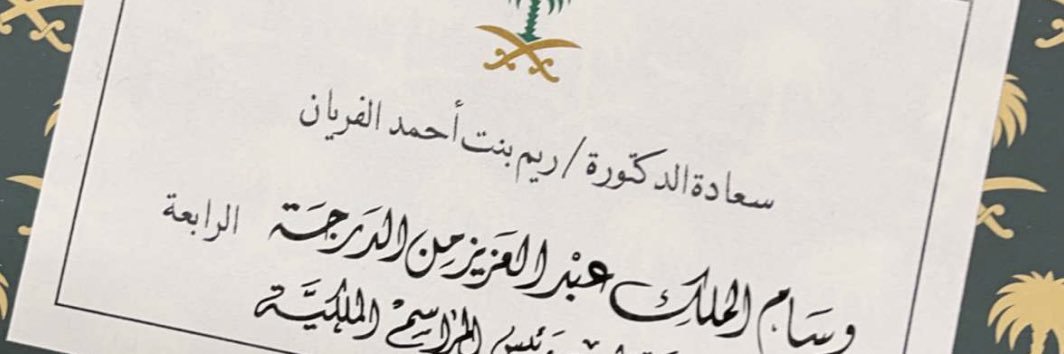 سعادة الدكتورة / ريم بنت أحمد الفريان
وسَام الملك عبْد العَزيز مِن الدَرجَة الرابعة
رئيس المراسِمْ الملكيَّة